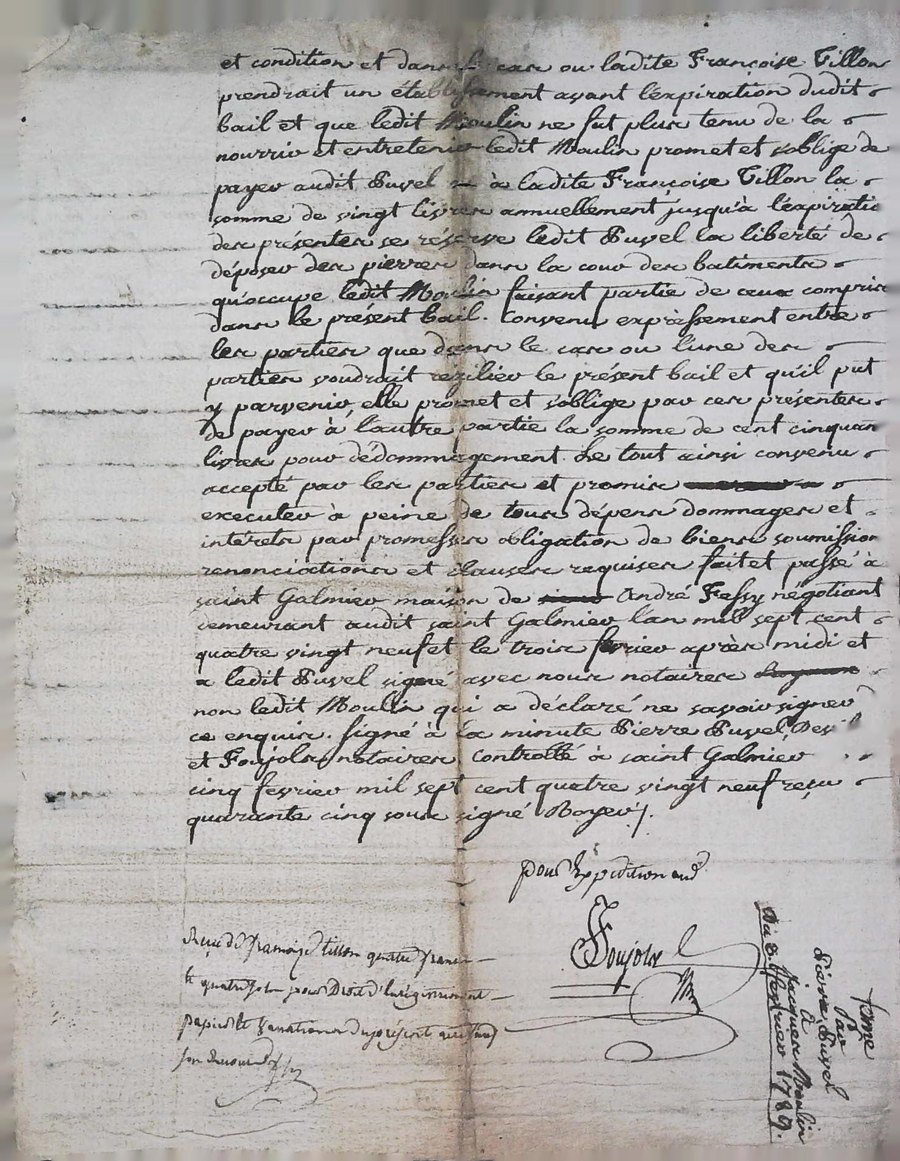 et condition et dans le cas ou ladite Françoise Tillon
prendrait un établissement avant l'expiration dudit
bail et que ledit Moulin ne fut plus tenu de la
nourrir et entretenir ledit Moulin promet et s'oblige de
payer audit Puvel à ladite Françoise Tillon la
somme de vingt livres annuellement jusqu'à l'expiratio
des présentes se réserve ledit Puvel la liberté de
déposer des pierres dans la cour des batiments
qu'occupe ledit Moulin faisant partie de ceux compris
dans le présent bail. Convenu expressement entre
les parties que dans le cas ou l'une des
parties voudrait résilier le présent bail et qu'il put
y parvenir, elle promet et s'oblige par ces présentes
de payer à l'autre partie la somme de cent cinquan
livres pour dédommagement Le tout ainsi convenu
accepté par les parties et promis
executer à peine de tous dépens dommages et
intérets par promesses obligation de biens soumission
renonciations et clauses requises fait et passé à
saint Galmier maison de André Fessy négotiant
demeurant audit saint Galmier l'an mil sept cent
quatre vingt neuf et le trois fevrier après midi et
a ledit Puvel signé avec nous notaires
non ledit Moulin qui a déclaré ne savoir signer
ce enquis. signé à la minute Pierre Puvel,
et Foujols notaires controllé à saint Galmier
cinq fevrier mil sept cent quatre vingt neuf reçu
quarante cinq sous signé Boyer /.
pour Expedition
Foujols
Reçu de françoise tillon quatre francs
et quatre pour Droit d'Enregistrement
papier et du présent
son
ferme
Par
Pierre Puvel
à
Jacques Moulin
Du 3 fevrier 1789.